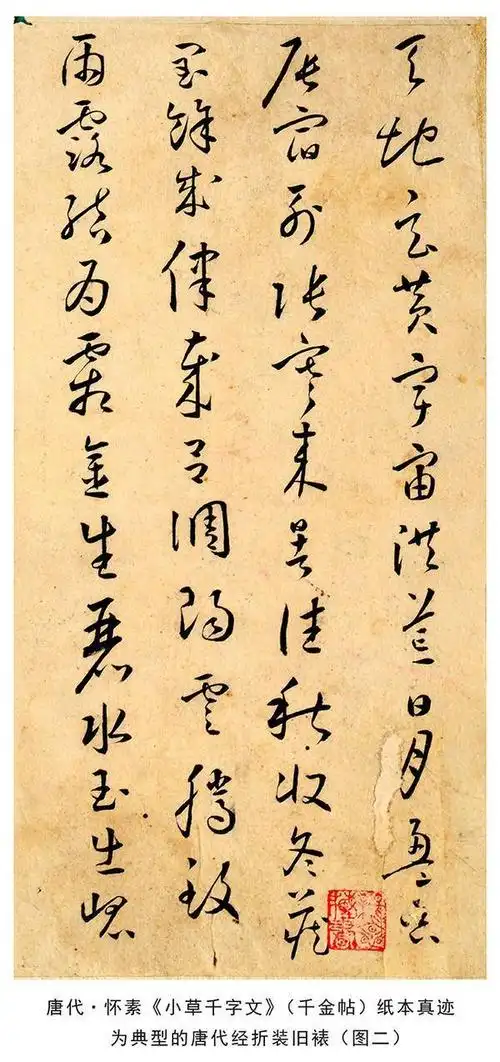 天地玄黄宇宙洪荒日月盈昃
辰宿列張寒來暑往秋收冬藏
閏餘成律歲呂調陽雲騰致
雨露結為霜金生麗水玉出崑
唐代·怀素《小草千字文》（千金帖）纸本真迹
为典型的唐代经折装旧裱（图二）